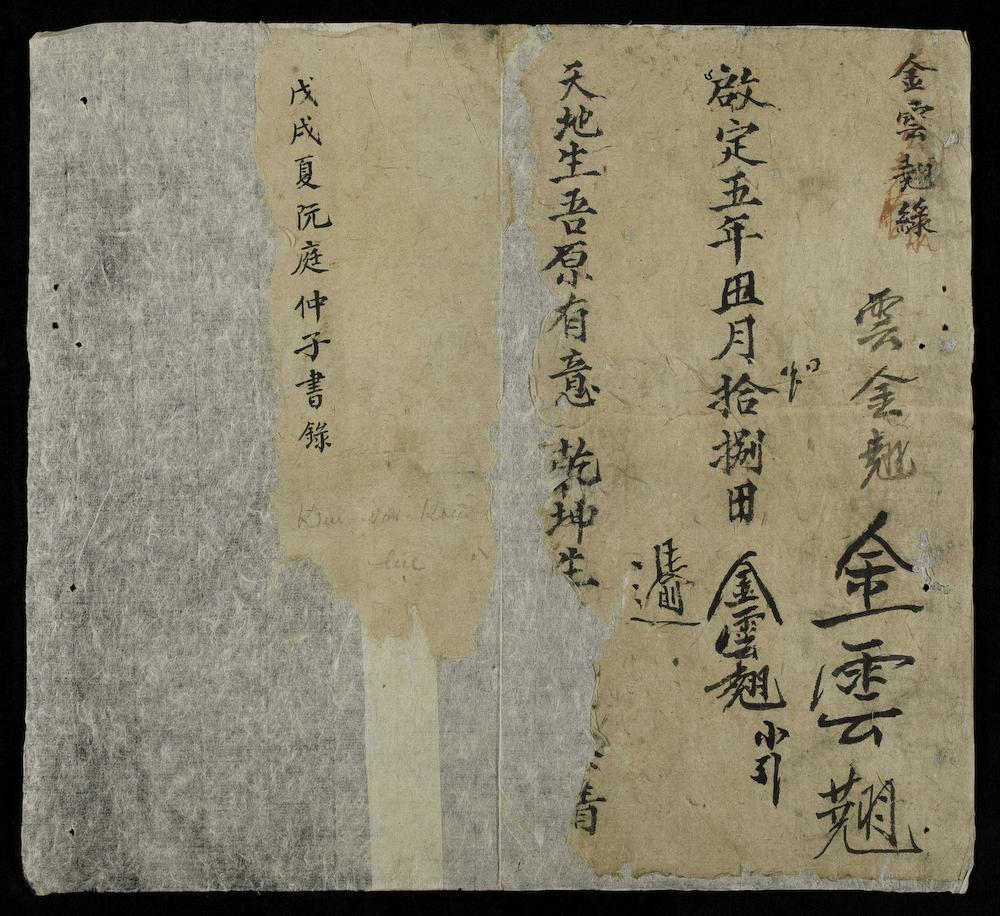 金雲翹錄
雲金翹
金雲翹
啟定五年田月拾捌田
金雲翹
小引
天地生吾原有意乾坤生
青
戊戌夏阮庭仲子書錄
Kim-Van-Kieu
luc